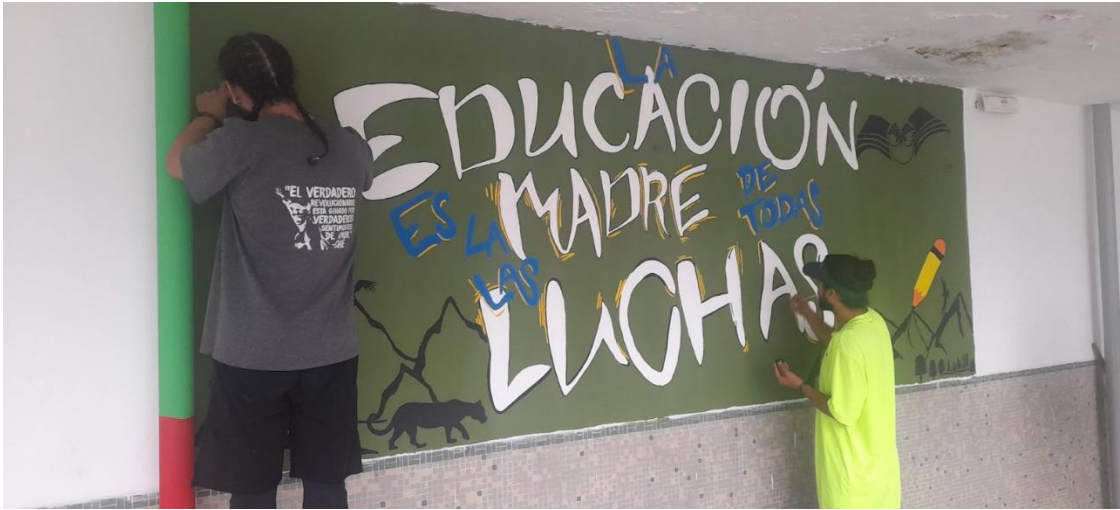 LA
EDUCACIÓN
ES LA MADRE DE TODAS
LAS LUCHAS
"EL VERDADERO
REVOLUCIONARIO
ESTÁ GUIADO POR
VERDADEROS
SENTIMIENTOS
DE AMOR"
-CHE